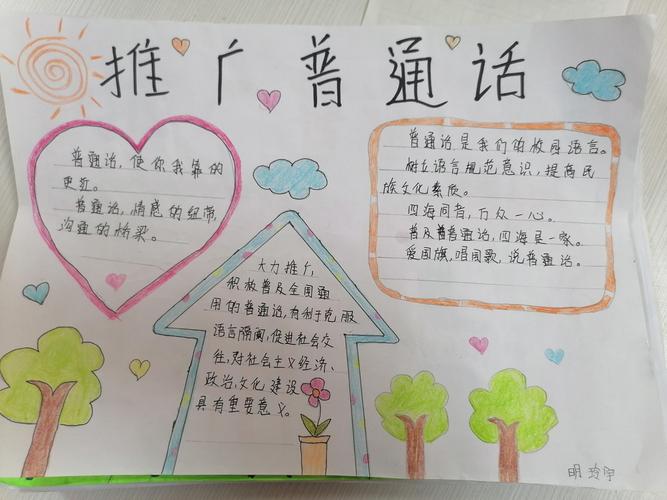 推广普通话
普通话，使你我靠的
更近。
普通话，情感的纽带，
沟通的桥梁。
普通话是我们的校园语言。
树立语言规范意识，提高民
族文化素质。
四海同音，万众一心。
普及普通话，四海是一家。
爱国旗，唱国歌，说普通话。
大力推广，
积极普及全国通
用的普通话，有利于克服
语言隔阂，促进社会交
往，对社会主义经济、
政治，文化建设
具有重要意义。
明